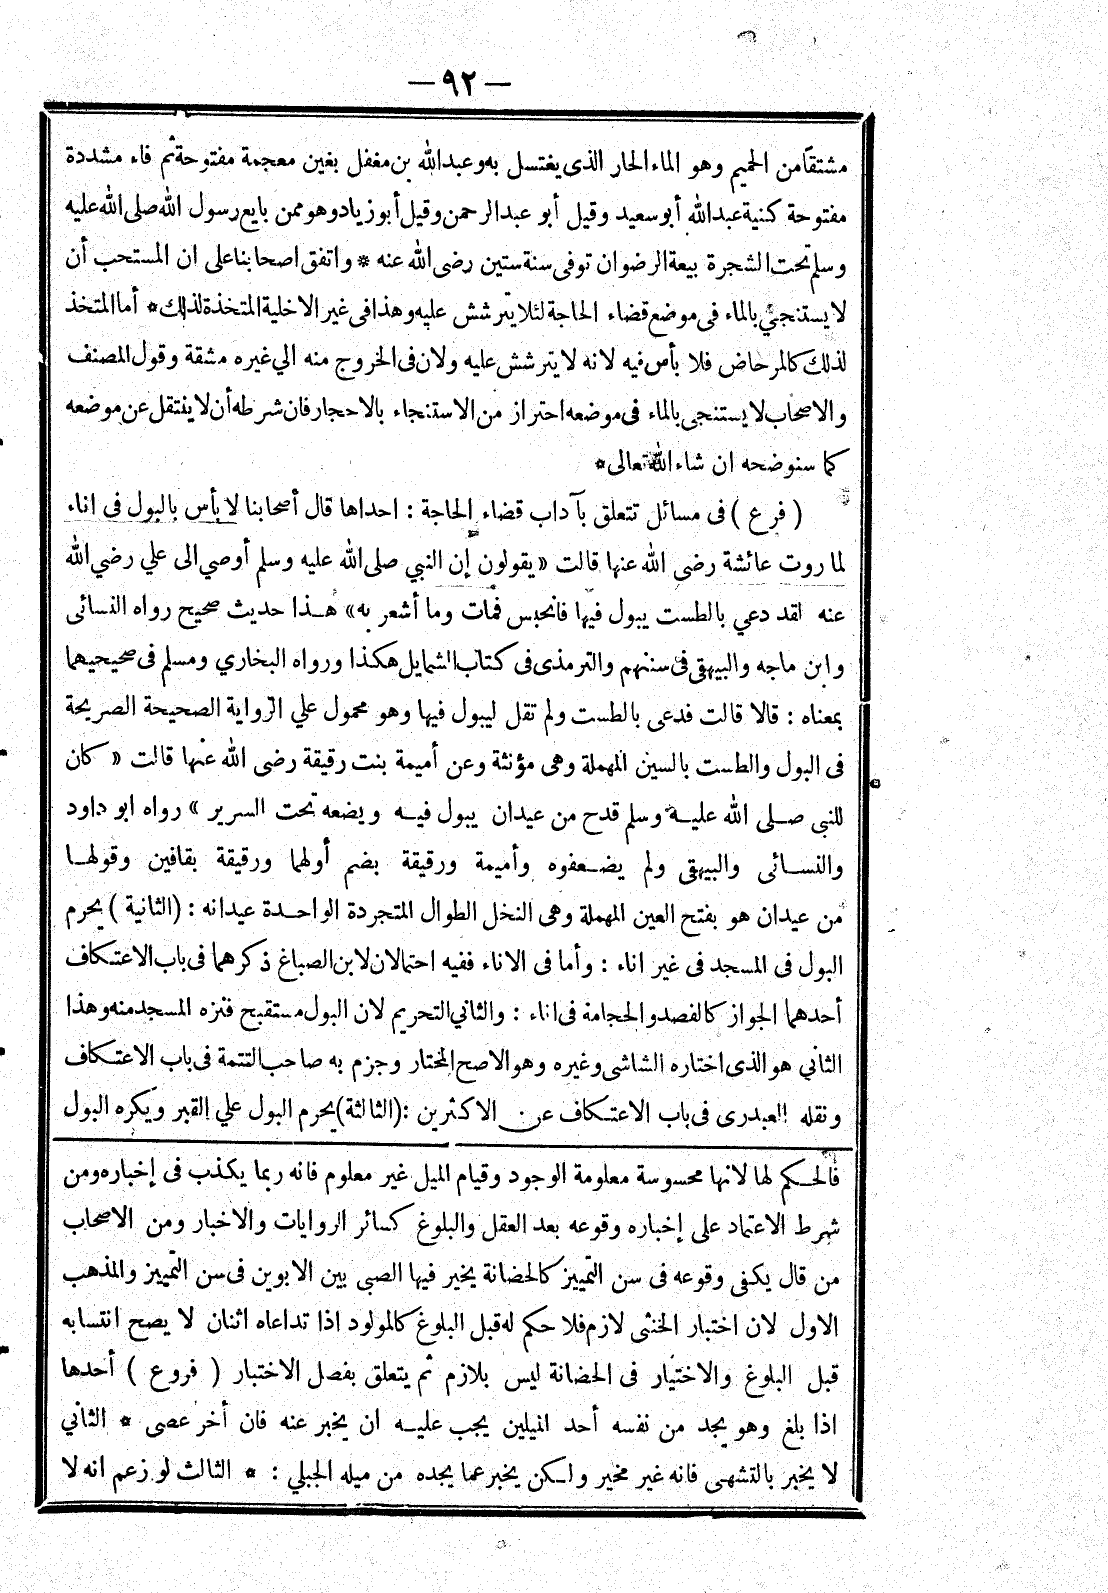 — ٩٢ —
مشتقا من الحميم وهو الماء الحار الذى يغتسل به وعبد الله بن مغفل بغين معجمة مفتوحة ثم فاء مشددة
مفتوحة كنية عبد الله أبو سعيد وقيل أبو عبد الرحمن وقيل أبو زياد وهو ممن بايع رسول الله صلى الله عليه
وسلم تحت الشجرة بيعة الرضوان توفى سنة ستين رضى الله عنه * واتفق اصحابنا على ان المستحب أن
لا يستنجئ بالماء فى موضع قضاء الحاجة لئلا يترشش عليه وهذا فى غير الاخلية المتخذة لذلك * أما المتخذ
لذلك كالمرحاض فلا بأس فيه لانه لا يترشش عليه ولان فى الخروج منه الي غيره مشقة وقول المصنف
والاصحاب لا يستنجى بالماء فى موضعه احتراز من الاستنجاء بالاحجار فان شرطه أن لا ينتقل عن موضعه
كما سنوضحه ان شاء الله تعالى *
( فرع ) فى مسائل تتعلق بآداب قضاء الحاجة : احداها قال أصحابنا لا بأس بالبول فى اناء
لما روت عائشة رضى الله عنها قالت « يقولون إن النبي صلى الله عليه وسلم أوصي الى علي رضي الله
عنه لقد دعي بالطست يبول فيها فانحبس فمات وما أشعر به » هـذا حديث صحيح رواه النسائى
وابن ماجه والبيهقى فى سننهم والترمذى فى كتاب الشمايل هكذا ورواه البخاري ومسلم فى صحيحيهما
بمعناه : قالا قالت فدعى بالطست ولم تقل ليبول فيها وهو محمول علي الرواية الصحيحة الصريحة
فى البول والطست بالسين المهملة وهى مؤنثة وعن أميمة بنت رقيقة رضى الله عنها قالت « كان
للنبى صـلى الله عليـه وسلم قدح من عيدان يبول فيـه ويضعه تحت السرير » رواه ابو داود
والنسـائى والبيهقى ولم يضـعفوه وأميمة ورقيقة بضم أولهما ورقيقة بقافين وقولهـا
من عيدان هو بفتح العين المهملة وهى النخل الطوال المتجردة الواحـدة عيدانه : (الثانية ) يحرم
البول فى المسجد فى غير اناء : وأما فى الاناء ففيه احتمالان لابن الصباغ ذكرهما فى باب الاعتكاف
أحدهما الجواز كالفصد والحجامة فى اناء : والثاني التحريم لان البول مستقبح فنزه المسجد منه وهذا
الثاني هو الذى اختاره الشاشى وغيره وهو الاصح المختار وجزم به صاحب التتمة فى باب الاعتكاف
ونقله العبدرى فى باب الاعتكاف عن الاكثرين : (الثالثة) يحرم البول علي القبر ويكره البول
فالحـكم لها لانها محسوسة معلومة الوجود وقيام الميل غير معلوم فانه ربما يكذب فى إخباره ومن
شرط الاعتماد على إخباره وقوعه بعد العقل والبلوغ كسائر الروايات والاخبار ومن الاصحاب
من قال يكفى وقوعه فى سن التمييز كالحضانة يخير فيها الصبى بين الابوين فى سن التمييز والمذهب
الاول لان اختبار الخنثى لازم فلا حكم له قبل البلوغ كالمولود اذا تداعاه اثنان لا يصح انتسابه
قبل البلوغ والاختيار فى الحضانة ليس بلازم ثم يتعلق بفصل الاختبار ( فروع ) أحدها
اذا بلغ وهو يجد من نفسه أحد الميلين يجب عليـه ان يخبر عنه فان أخر عصى * الثاني
لا يخبر بالتشهى فانه غير مخير ولـكن يخبر عما يجده من ميله الجبلي : * الثالث لو زعم انه لا